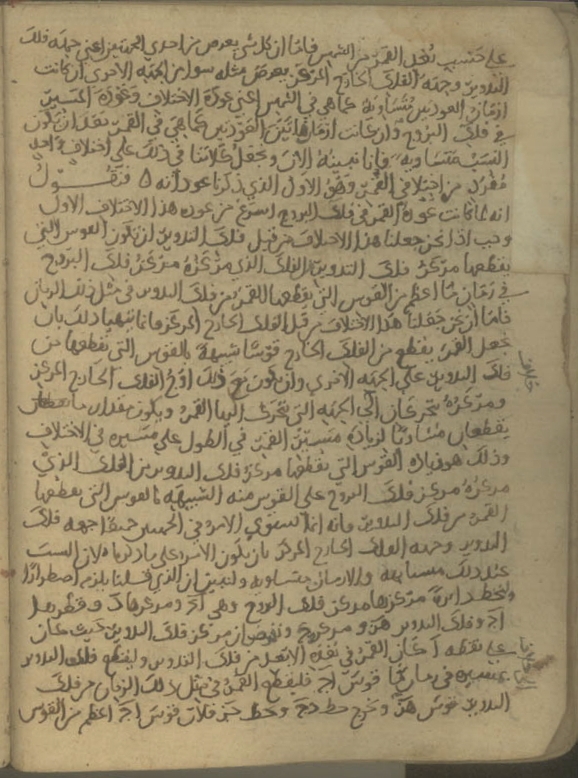 على حسب بعد القمر من الشمس فاما ان كل شي يعرض من احدى الجهتين اعني جهه فلك
التدوير وجهه الفلك الخارج المركز يعرض مثله سوا من الجهه الاخرى ان كانت
ازمان العودتين متساويه كما هي في الشمس اعني عوده الاختلاف وعوده المسير
في فلك البروج وان كانت ازمان هاتين العودتين كما هي في القمر بعد ان تكون
النسب متساويه فانا نبينه الان ونجعل كلامنا في ذلك على اختلاف واحد
مفرد من اختلافي القمر وهو الاول الذي ذكرنا عودا ته فنقول
انه لما كانت عوده القمر في فلك البروج اسرع من عوده هذا الاختلاف الاول
وجب اذا نحن جعلنا هذا الاختلاف من قبل فلك التدوير ان تكون القوس التي
يقطعها مركز فلك التدوير الفلك الذي مركزه مركز فلك البروج
في زمان ما اعظم من القوس التي يقطعها القمر من فلك التدوير في مثل ذلك الزمان
فاما ان نحن جعلنا هذا الاختلاف من قبل الفلك الخارج المركز فانما يتهيا ذلك بان
نجعل القمر يقطع من الفلك الخارج قوسا شبيهه بالقوس التي يقطعها من
فلك التدوير على الجهه الاخرى وان يكون مع ذلك اوج الفلك الخارج المركز
ومركزه يتحركان الى الجهه التي يتحرك اليها القمر ويكون مقدار ما يقطعان
يقطعان مساويا لزياده مسير القمر في الطول على مسيره في الاختلاف
وذلك هو زياده القوس التي يقطعها مركز فلك التدوير من الفلك الذي
مركزه مركز فلك البروج على القوس منه الشبيهه بالقوس التي يقطعها
القمر من فلك التدوير فانه انما يستوي الامر في الجهتين جميعا جهه فلك
التدوير وجهه الفلك الخارج المركز بان يكون الامر على ما ذكرنا لان النسب
عند ذلك متشابهه والازمان متساويه ولنبين ان الذي قلنا يلزم اضطرارا
ولنخط دايرة مركزها مركز فلك البروج وهي اج ومركزها د وقطرها
اج وفلك التدوير هز ومركزه ج ونفرض ان مركز فلك التدوير حيث كان
على نقطه ا كان القمر في نقطه الابعد من فلك التدوير وليقطع فلك التدوير
بمسيره في زمان ما قوس اج فليقطع القمر في مثل ذلك الزمان من فلك
التدوير قوس هز ونخرج خط دج وخط جز فلان قوس اج اعظم من القوس